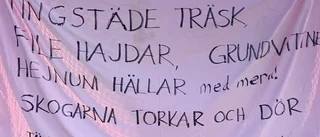 TINGSTÄDE TRÄSK
FILE HAJDAR, GRUNDVATTNE
HEJNUM HÄLLAR med mera!
SKOGARNA TORKAR OCH DÖR